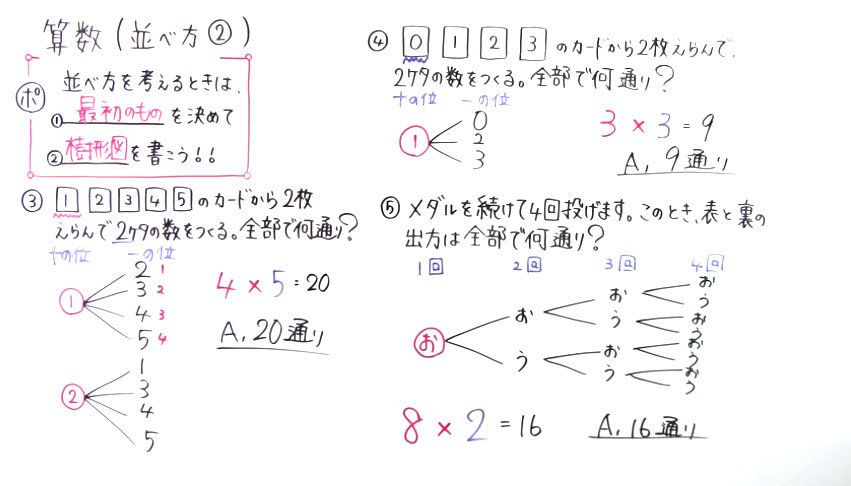 算数(並べ方②)
ポ
並べ方を考えるときは、
①最初のものを決めて
②樹形図を書こう!!
③ 1 2 3 4 5 のカードから2枚
えらんで2ケタの数をつくる。全部で何通り?
十の位 一の位
1
2 1
3 2
4 3
5 4
4×5=20
A. 20通り
2
1
3
4
5
④ 0 1 2 3 のカードから2枚えらんで、
2ケタの数をつくる。全部で何通り?
十の位 一の位
1
0
2
3
3×3=9
A. 9通り
⑤ メダルを続けて4回投げます。このとき、表と裏の
出方は全部で何通り?
1回 2回 3回 4回
お
お
う
お
う
お
う
お
う
お
う
お
う
お
う
8×2=16
A. 16通り